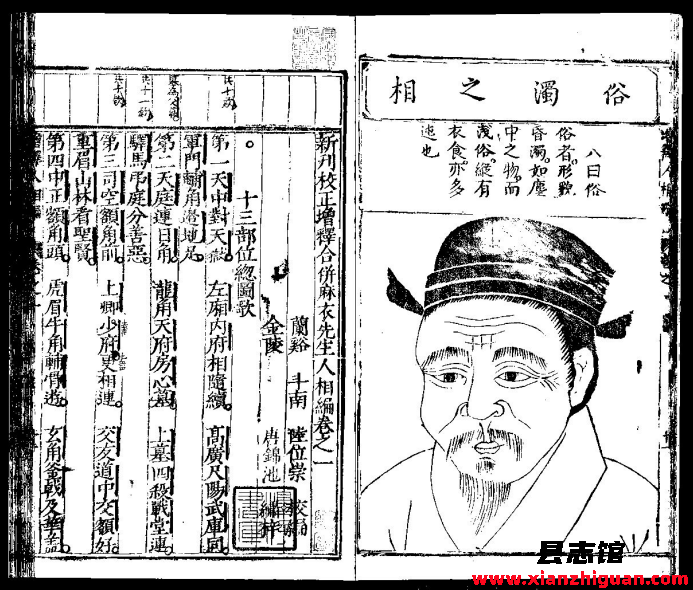 俗濁之相
八曰俗
俗者形貌
昏濁如塵
中之物而
淺俗縱有
衣食亦多
迍也
新刊校正增釋合併麻衣先生人相編卷之一
蘭谿 斗南 陸位崇 校
金陵 唐錦池 繡梓
十三部位總圖歌
第一天中對天嶽 左廂內府相隨續 高廣尺陽武庫同
軍門輔角邊地足
第二天庭連日角 龍角天府房心墓 上墓四殺戰堂連
驛馬弔庭分善惡
第三司空額角前 上卿少府更相連 交友道中交額好
重眉山林看聖賢
第四中正額角頭 虎眉牛角輔骨遊 玄角斧戟及華蓋
县志馆
www.xianzhiguan.com